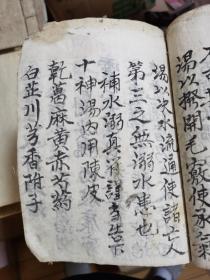 湯以撥開毛竅使水氣
湯以次水流通使諸上人
第三之無溺水患也
補水溺真浮詩方告下
十神湯內用陳皮
乾葛麻黃赤芍藥
白芷川芎香附子